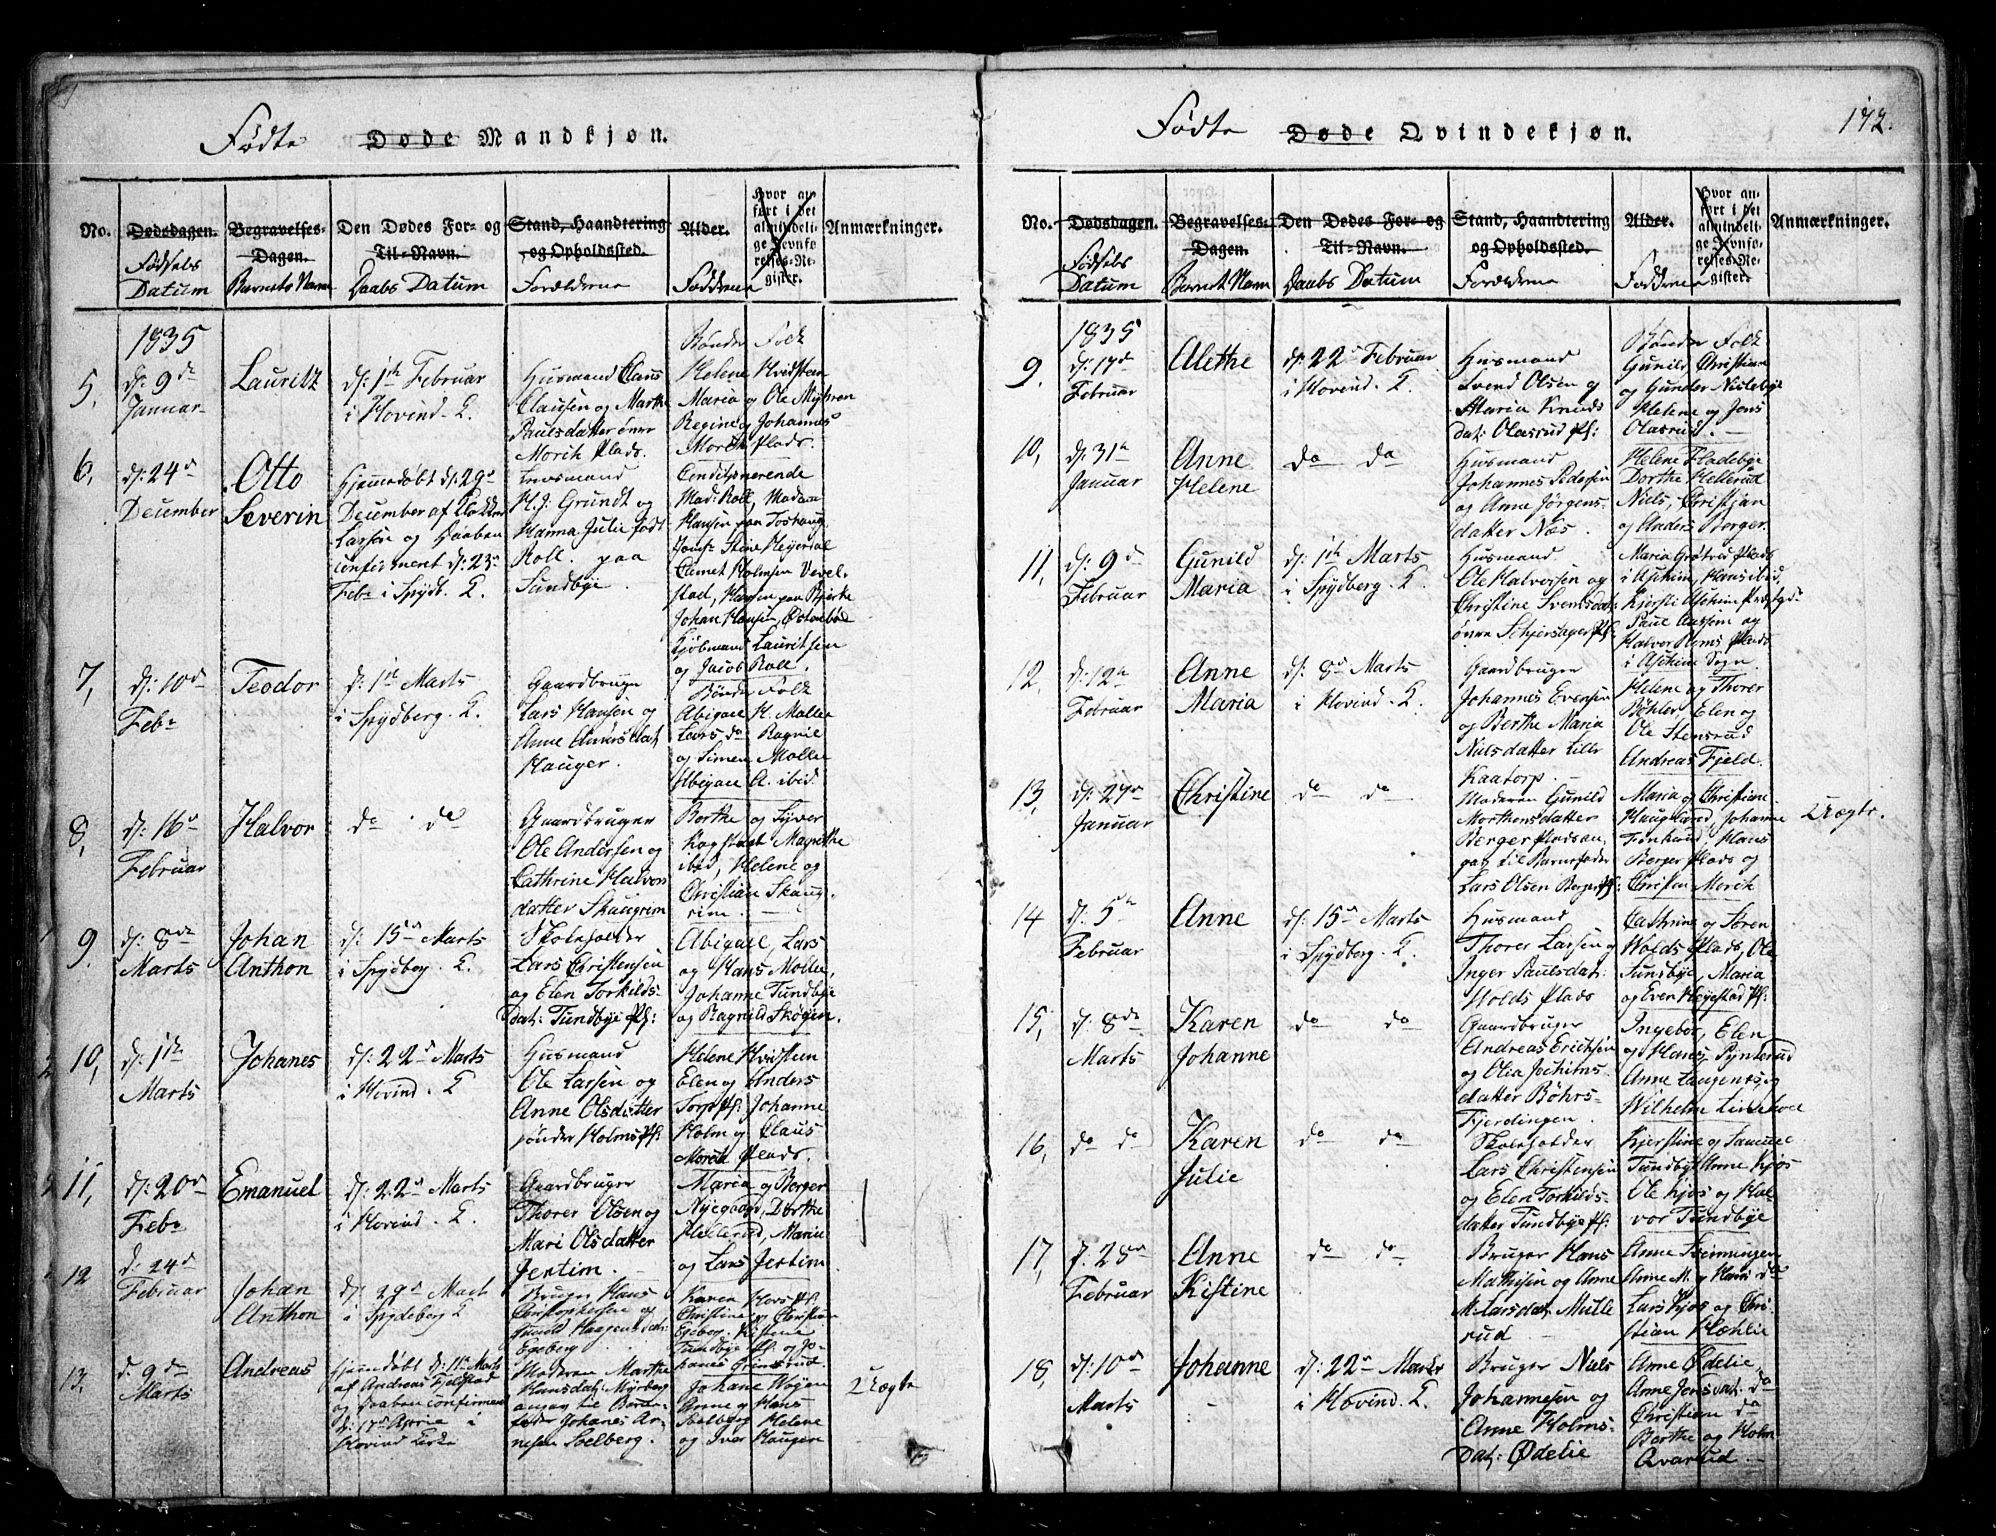 Fødte Døde Mandkjøn.
No.
Dødsdagen.
Fødsels
Datum
Begravelses-
Dagen.
Barnets Navn
Den Dødes For- og
Til-Navn.
Daabs Datum
Stand, Haandtering
og Opholdssted.
Forældrene
Alder.
Fadderne
Hvor an-
ført i det
almindeli-
ge Jevnfø-
relses-Re-
gister.
Anmærkninger.
5,
1835
d: 9de
Januar
Lauritz
d: 1ste Februar
i Hovind K.
Husmand Claus
Clausen og Marthe
Paulsdatter øvre
Morth Plads.
Bønder Folk
Helene Kvidsten
Maria og Ole Myhren
Regine og Johannes
Morth Plads.
6,
d: 24de
December
Otto
Severin
Hjemmedøbt d: 29de
December af Klokker
Larsen og Daaben
confirmeret d: 23de
Febr i Spydb. K.
Lensmand
H. J. Grundt og
Hanna Julie født
Roll. paa
Sundbye.
Conditionerende
Mad: Roll, Madam
Hansen paa Toshaug
Jomf: Stine Heyerdal
Holmsen Vevel-
stad, Hansen paa Bjerke
Johan Hansen,
Kjøbmand Lauritsen
og Jacob Roll.
7,
d: 10de
Febr
Teodor
d: 1ste Marts
i Spydberg K.
Gaardbruger
Lars Hansen og
Anne Andersdat
Hauger.
Bønder Folk
Abigael H. Moller
Lars do Ragnil
og Simen Moller
Abigael A. ibid.
8,
d: 16de
Februar
Halvor
do do
Gaardbruger
Ole Andersen og
Cathrine Halvors
datter Skaugrim
Berthe og Syver
Kogstad Magrethe
ibid, Helene og
Christian Skaug-
rim.
9.
d: 8de
Marts
Johan
Anthon
d: 15de Marts
i Spydberg. K.
Skoleholder
Lars Christensen
og Elen Torkilds-
Dat: Tundbye Pl:
Abigael, Lars
og Hans Moller,
Johanne Tundbye
og Ragnild Skøgen.
10,
d: 1ste
Marts
Johanes
d: 22de Marts
i Hovind. K
Husmand
Ole Larsen og
Anne Olsdatter
sønder Holms Pl:
Helene Kvidsten
Elen og Anders
Torp Pl: Johanne
Holm og Claus
Morth Plads.
11,
d: 20de
Febr
Emanuel
d: 22de Marts
i Hovind. K.
Gaardbruger
Thorer Olsen og
Mari Olsdatter
Jertim.
Maria og Borger
Nyegaard, Dorthe
Hellerud, Marie
og Lars Jertim.
12
d: 24de
Februar
Johan
Anthon
d: 29de Mart
i Spydeberg K
Bruger Hans
Christophersen og
Gunild Haagensdat:
Egeberg
Karen Hors Pl:
Christine og Christian
Egeberg. Kistene
Tundbye Pl: og Jo-
hanes Grinsrud.
13,
d. 9de
Marts
Andreas
Hjemdøbt d: 11te Marts
af Andreas Fjelstad
og Daaben confirmeret
d: 17de Aprile i
Hovind Kirke
Moderen Marthe
Hansdat: Myrberg
angav til Barne-
fader Johanes Ar-
nesen Solberg.
Johane Woyen
Anne og Hans
Soelberg Helene
og Iver Haugen
Uægte
Fødte Døde Qvindekjøn.
172.
No.
Dødsdagen.
Fødsels
Datum
Begravelses-
Dagen.
Barnets Navn
Den Dødes For- og
Til-Navn.
Daabs Datum
Stand, Haandtering
og Opholdssted.
Forældrene
Alder.
Fadderne
Hvor an-
ført i det
almindeli-
ge Jevnfø-
relses-Re-
gister.
Anmærkninger.
9.
1835
d: 17de
Februar
Alethe
d: 22de Februar
i Hovind. K.
Husmand
Svend Olsen og
Maria Knuds
dat: Olasrud Pl:
Bønder Folk
Gunild Christian
og Gunder Nielebye
Helene og Jens
Olasrud.
10,
d: 31te
Januar
Anne
Helene
do do
Husmand
Johannes Pedersen
og Anne Jørgens-
datter Næs.
Helene Fladebye
Dorthe Hellerud
Niels, Christjan
og Anders Borger.
11,
d: 9de
Februar
Gunild
Maria
d: 1ste Marts
i Spydberg. K.
Husmand
Ole Halvorsen og
Christine Svensdat:
øvre Schjersager Pl:
Maria Grøtved Plads
i Aschim, Hans ibid,
Kjersti Aschim Præstgd:
Paul Aassen og
Halvor Holms Plads
i Aschim Sogn.
12,
d: 12te
Februar
Anne
Maria
d: 8de Marts
i Hovind. K.
Gaardbruger
Johannes Evensen
og Berthe Maria
Nielsdatter Lille
Kaatorp.
Helene og Thorer
Bøhler, Elen og
Ole Stensrud
Andreas Fjeld.
13,
d: 27de
Januar
Christine
do do
Moderen Gunild
Morthensdatter
Berger Pladsan-
gav til Barnefader
Lars Olsen Berger Pl:
Maria og Christian
Haugaard, Johanne
Finhund, Hans
Berger Plads og
Christen Morth
Uægte.
14
d: 5te
Februar
Anne
d: 15de Marts
i Spydberg. K.
Husmand
Thorer Larsen og
Inger Paulsdat:
Wolds Plads
Cathrine og Søren
Wolds Plads, Ole
Sundbye, Maria
og Even Heyestad Pl:
15,
d: 8de
Marts
Karen
Johanne
do do
Gaardbruger
Andreas Erichsen
og Olia Jochims-
datter Bøhrs-
Fjerdingen.
Ingebor, Elen
og Hans Synterud
Anne Laugenes og
Wilhelm Lindehoel
16,
do do
Karen
Julie
do do
Skoleholder
Lars Christensen
og Elen Torkilds-
datter Tundbye Pl:
Kjerstine og Samuel
Tundbye Anne Kjos
Ole Kjos og Hal-
vor Tundbye
17,
d. 28de
Februar
Anne
Kistine
do do
Bruger Hans
Mathisen og Anne
M. Larsdat, Mulle
rud
Anne Skimmingen
Anne M. og Hans do
Lars Kjos og Chri-
stian Hæhlie
18,
d: 10de
Marts
Johanne
d: 22de Marts
i Hovind. K.
Bruger Niels
Johannesen og
Anne Holms-
Dat: Ødelie
Anne Ødelie,
Anne Jensdat: do
Christian do
Berthe og Holm
Qvarud